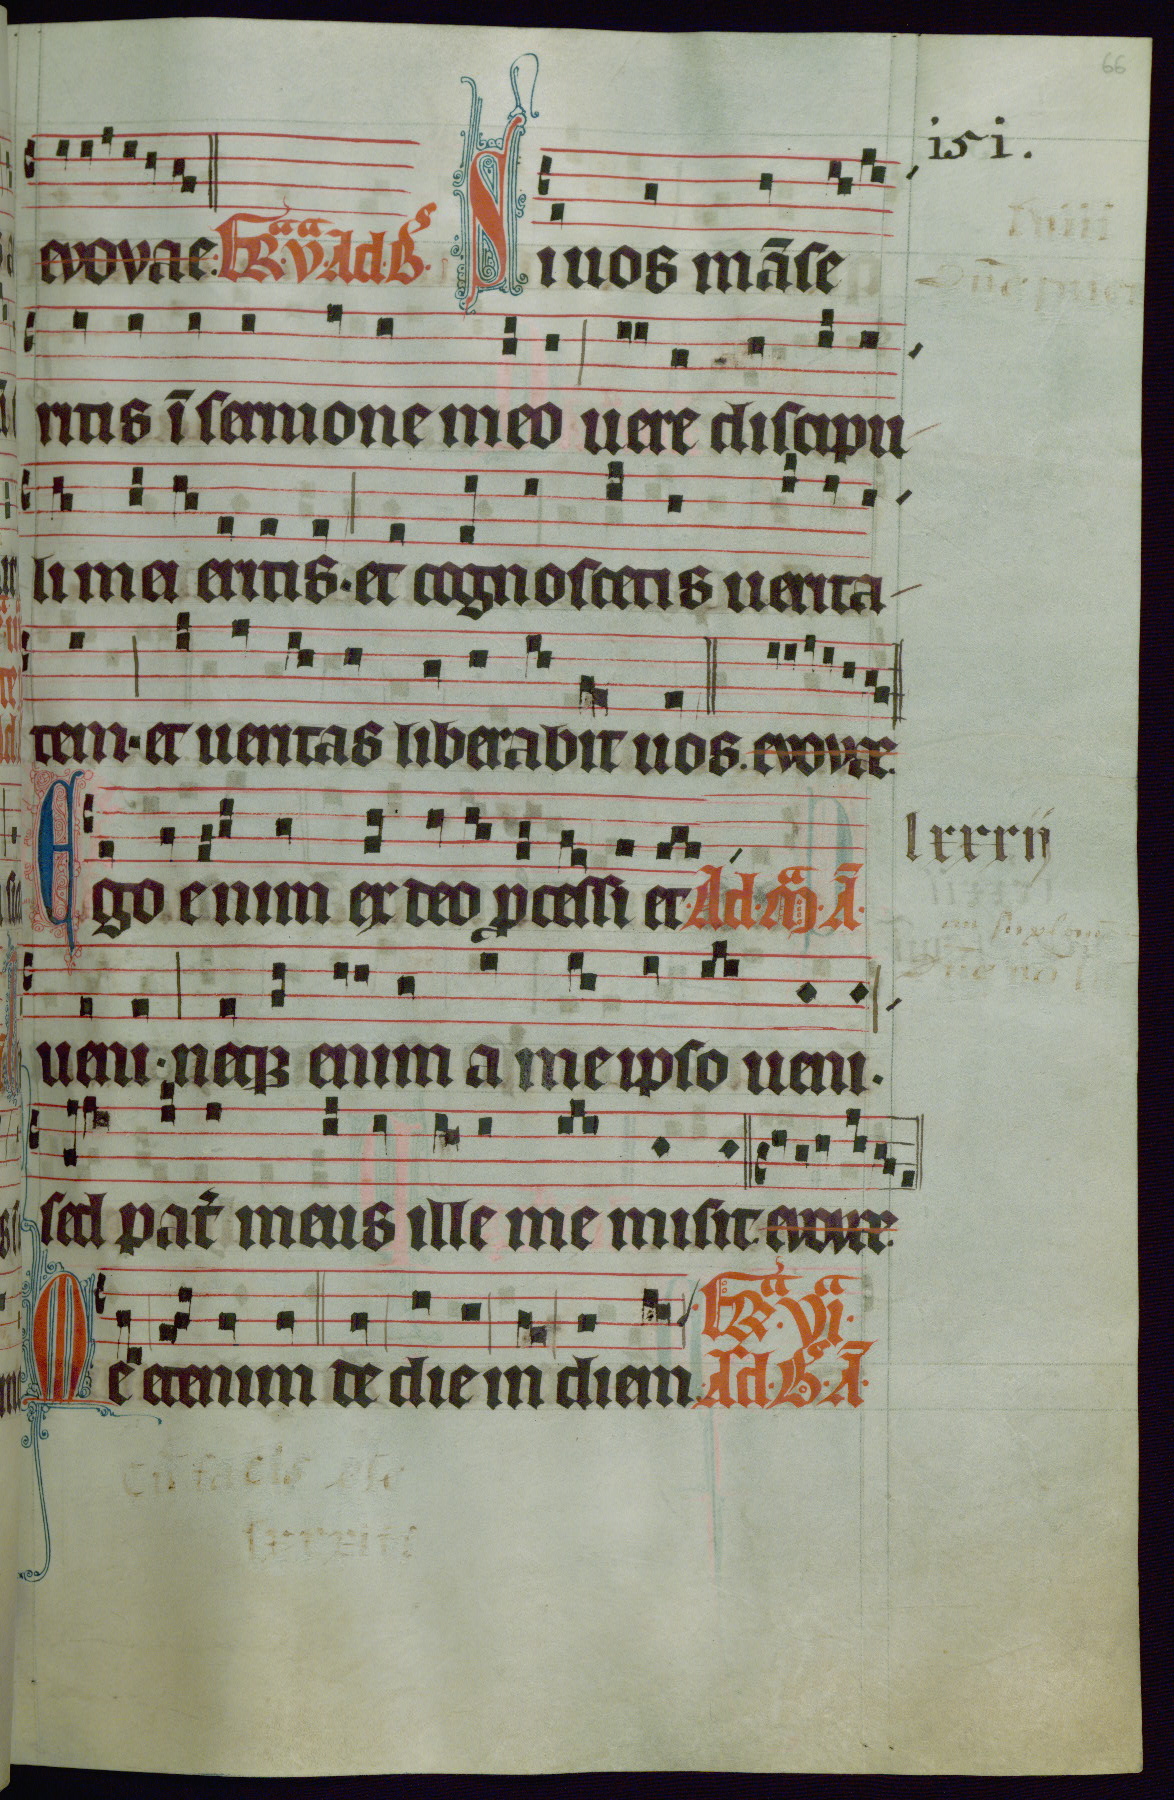 66
i5i.
evovae. FR̄a. v.a Ad. B.s Si uos māse
ritis ī sermione meo uere discipu
li mei eritis. et cognoscetis uerita
tem. et ueritas liberabit uos. evovae.
lxxxij
Ego enim ex deo p̱cessi et Ad. M̄a. Ā.
ueni. neqȝ enim a me ipso ueni.
sed pat̄ meus ille me misit. evovae.
Me etenim de die in diem FR̄a. vi.a
Ad. B. Ā.